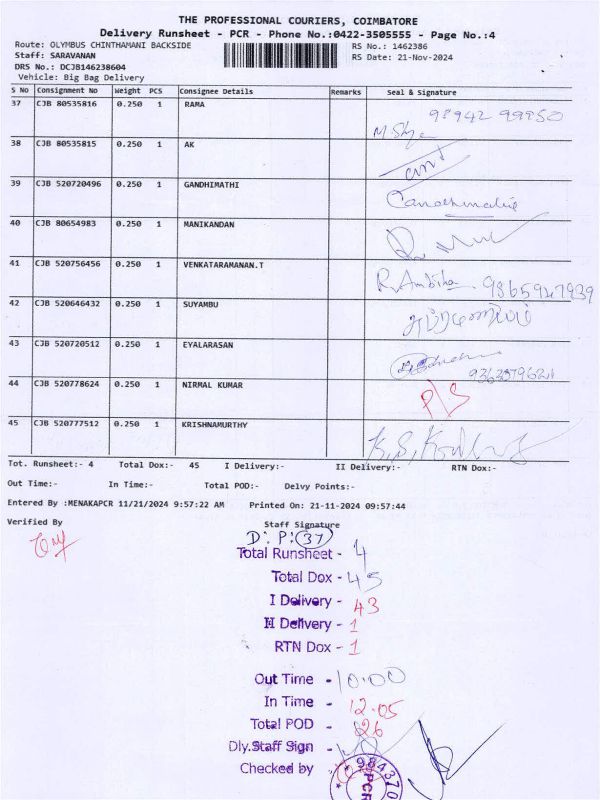 THE PROFESSIONAL COURIERS, COIMBATORE
Delivery Runsheet - PCR - Phone No.:0422-3505555 - Page No.:4
Route: OLYMBUS CHINTHAMANI BACKSIDE RS No.: 1462386
Staff: SARAVANAN RS Date: 21-Nov-2024
DRS No.: DCJB146238604
Vehicle: Big Bag Delivery
S No Consignment No Weight PCS Consignee Details Remarks Seal & Signature
37 CJB 80535816 0.250 1 RAMA 98942 99950
38 CJB 80535815 0.250 1 AK
39 CJB 520720496 0.250 1 GANDHIMATHI
40 CJB 80654983 0.250 1 MANIKANDAN
41 CJB 520756456 0.250 1 VENKATARAMANAN.T R. Ambika 9865947939
42 CJB 520646432 0.250 1 SUYAMBU
43 CJB 520720512 0.250 1 EYALARASAN
44 CJB 520778624 0.250 1 NIRMAL KUMAR P/S
45 CJB 520777512 0.250 1 KRISHNAMURTHY
Tot. Runsheet:- 4 Total Dox:- 45 I Delivery:- II Delivery:- RTN Dox:-
Out Time:- In Time:- Total POD:- Delvy Points:-
Entered By :MENAKAPCR 11/21/2024 9:57:22 AM Printed On: 21-11-2024 09:57:44
Verified By Staff Signature
D: P: 37
Total Runsheet - 4
Total Dox - 45
I Delivery - 43
II Delivery - 1
RTN Dox - 1
Out Time - 10.00
In Time - 12.05
Total POD - 26
Dly.Staff Sign -
Checked by
PCR